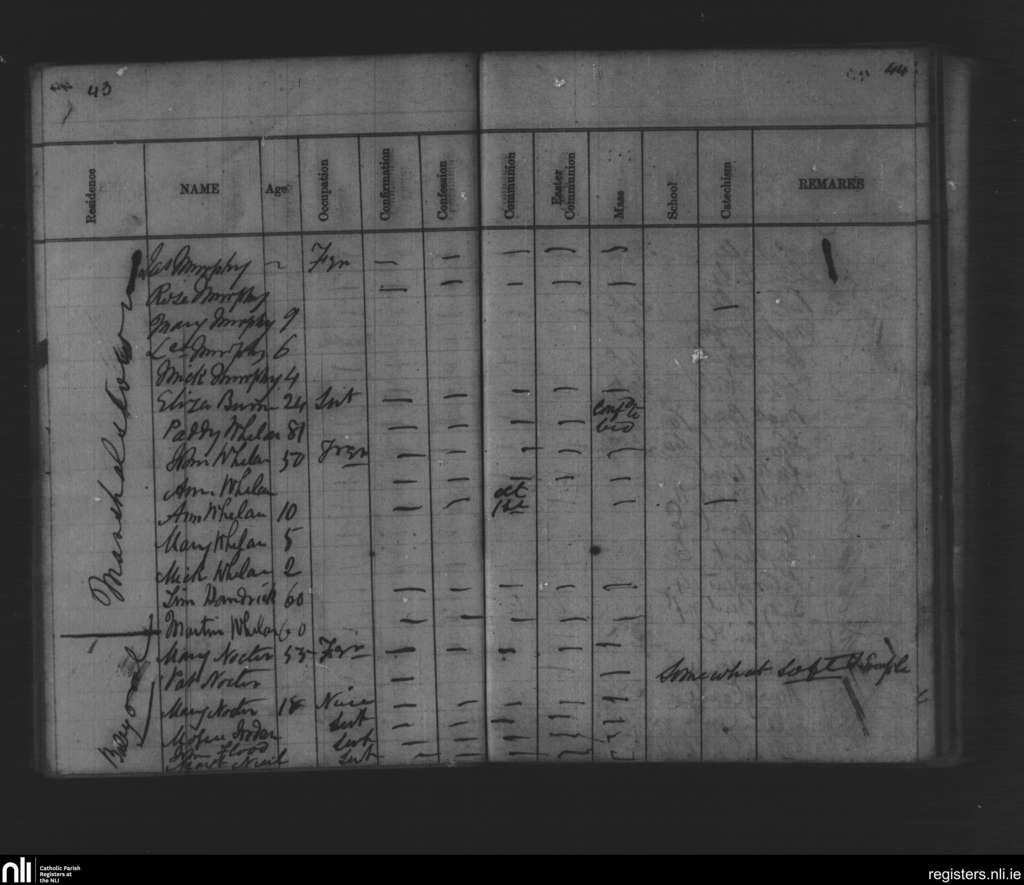 43
44
Residence NAME Age Occupation Confirmation Confession Communion Easter Communion Mass School Catechism REMARKS
Marshalstown
Jas Murphy — Fmr — — — — —
Rose Murphy — — — — —
Mary Murphy 9 —
Murphy 6
Mick Murphy 4
Eliza 24 Sert — — — — —
Paddy Whelan 81 — — — —
Whelan 50 — — — — —
Ann Whelan — — — — —
Ann Whelan 10 — — 1st — —
Mary Whelan 5
Mick Whelan 2
Jim Handrick 60 — — — — —
Martin Whelan 60 — — — — —
Mary Nocter Fmr — — — — —
Pat Nocter — — Somewhat soft & simple
Mary Nocter 18 Niece — — — — —
Sert — — — — —
Flood Sert — — — — —
Sert — — — —
nli
Catholic Parish
Registers at
the NLI
registers.nli.ie